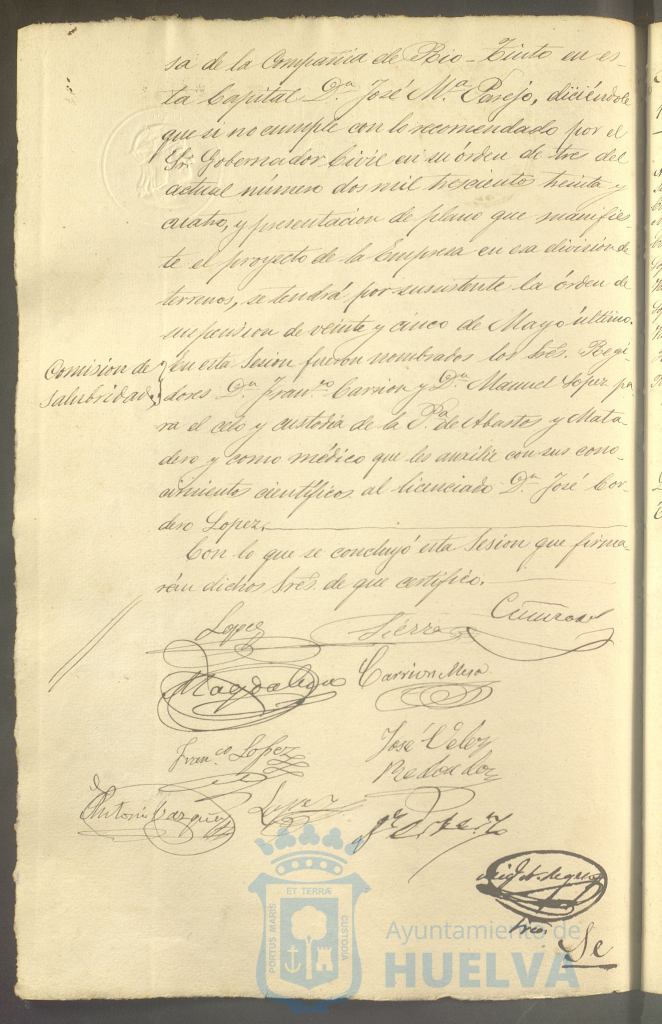 sa de la Compañia de Rio-Tinto en es-
ta Capital D.ⁿ José M.ª Parejo, diciéndole
que si no cumple con lo recomendado por el
Sr. Gobernador Civil en su órden de tres del
actual número dos mil trescientos treinta y
cuatro, y presentacion de plano que manifies-
te el proyecto de la Empresa en esa division de
terrenos, se tendrá por subsistente la órden de
suspension de veinte y cinco de Mayo último.
Comision de
Salubridad.
En esta Sesion fueron nombrados los Sres. Regi-
dores D.ⁿ Fran.co Carrion y D.ⁿ Manuel Lopez pa-
ra el celo y custodia de la P.ª de Abastos y Mata-
dero y como médico que les auxilie con sus cono-
cimientos científicos al licenciado D.ⁿ José Cor-
dero Lopez.
Con lo que se concluyó esta Sesion que firma-
rán dichos Sres. de que certifico.
Lopez Sierra
Magdalena Carrion Mesa
Fran.co Lopez José Velez
Redondo
Antonio Vazquez Lopez
Srio.
Se
ET TERRÆ
PORTUS MARIS
CUSTODIA
Ayuntamiento de
HUELVA